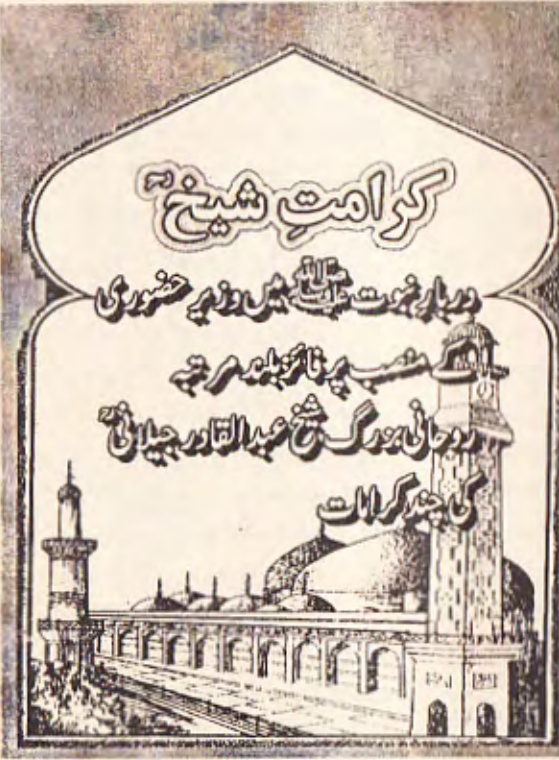 کرامتِ شیخؒ
دربارِ نبوت ﷺ میں وزیر حضوری
کے منصب پر فائز بلند مرتبہ
روحانی بزرگ شیخ عبدالقادر جیلانیؒ
کی چند کرامات